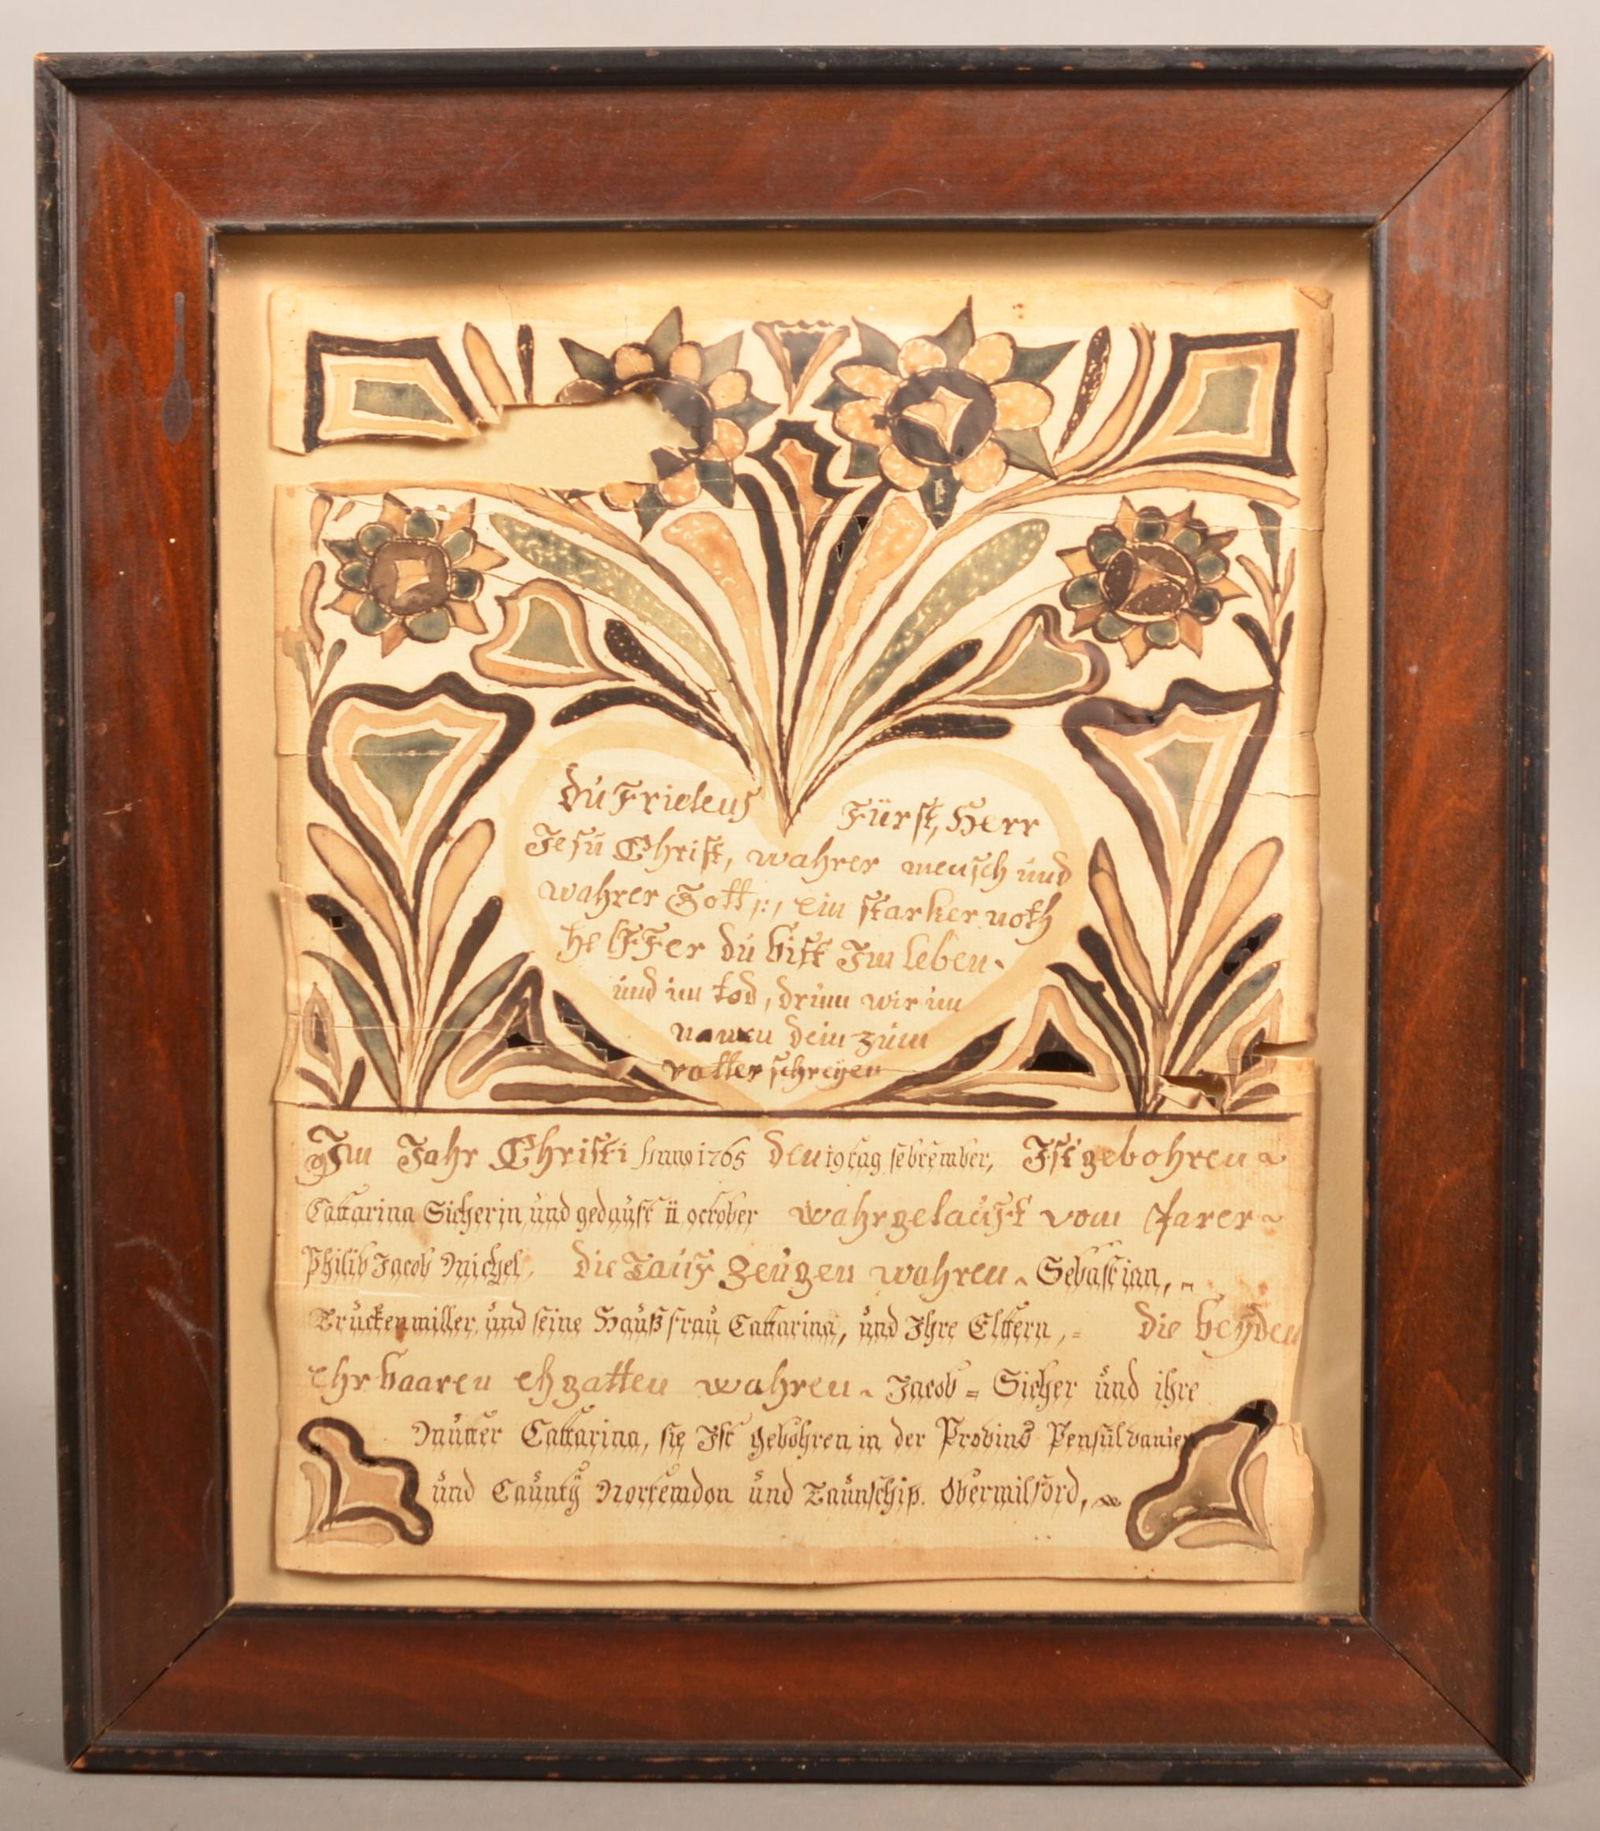 dŭ Friedens Fürst, Herr
Jesŭ Christ, wahrer mensch ŭnd
wahrer Gott,:, ein starker noth
helffer dŭ bist Im leben
ŭnd im tod, drŭm wir im
namen dein zŭm
vatter schreyen
Im Jahr Christi Anno 1765 den 19 tag sebtember, Ist gebohren
Cattarina Sicherin ŭnd gedaŭft ii october wahr getaŭft vom farer
Philib Jacob Michel, die Taŭf zeŭgen wahren Sebastian,
Trŭckenmiller ŭnd seine Haŭß fraŭ Cattarina, ŭnd Ihre Eltern, die beyden
ehrbaaren ehgatten wahren Jacob = Sicher ŭnd ihre
Mŭtter Cattarina, sie Ist gebohren in der Provins Pensŭlvanien
ŭnd Caŭnty Nortemdon ŭnd Taŭnschip. Obermilford,